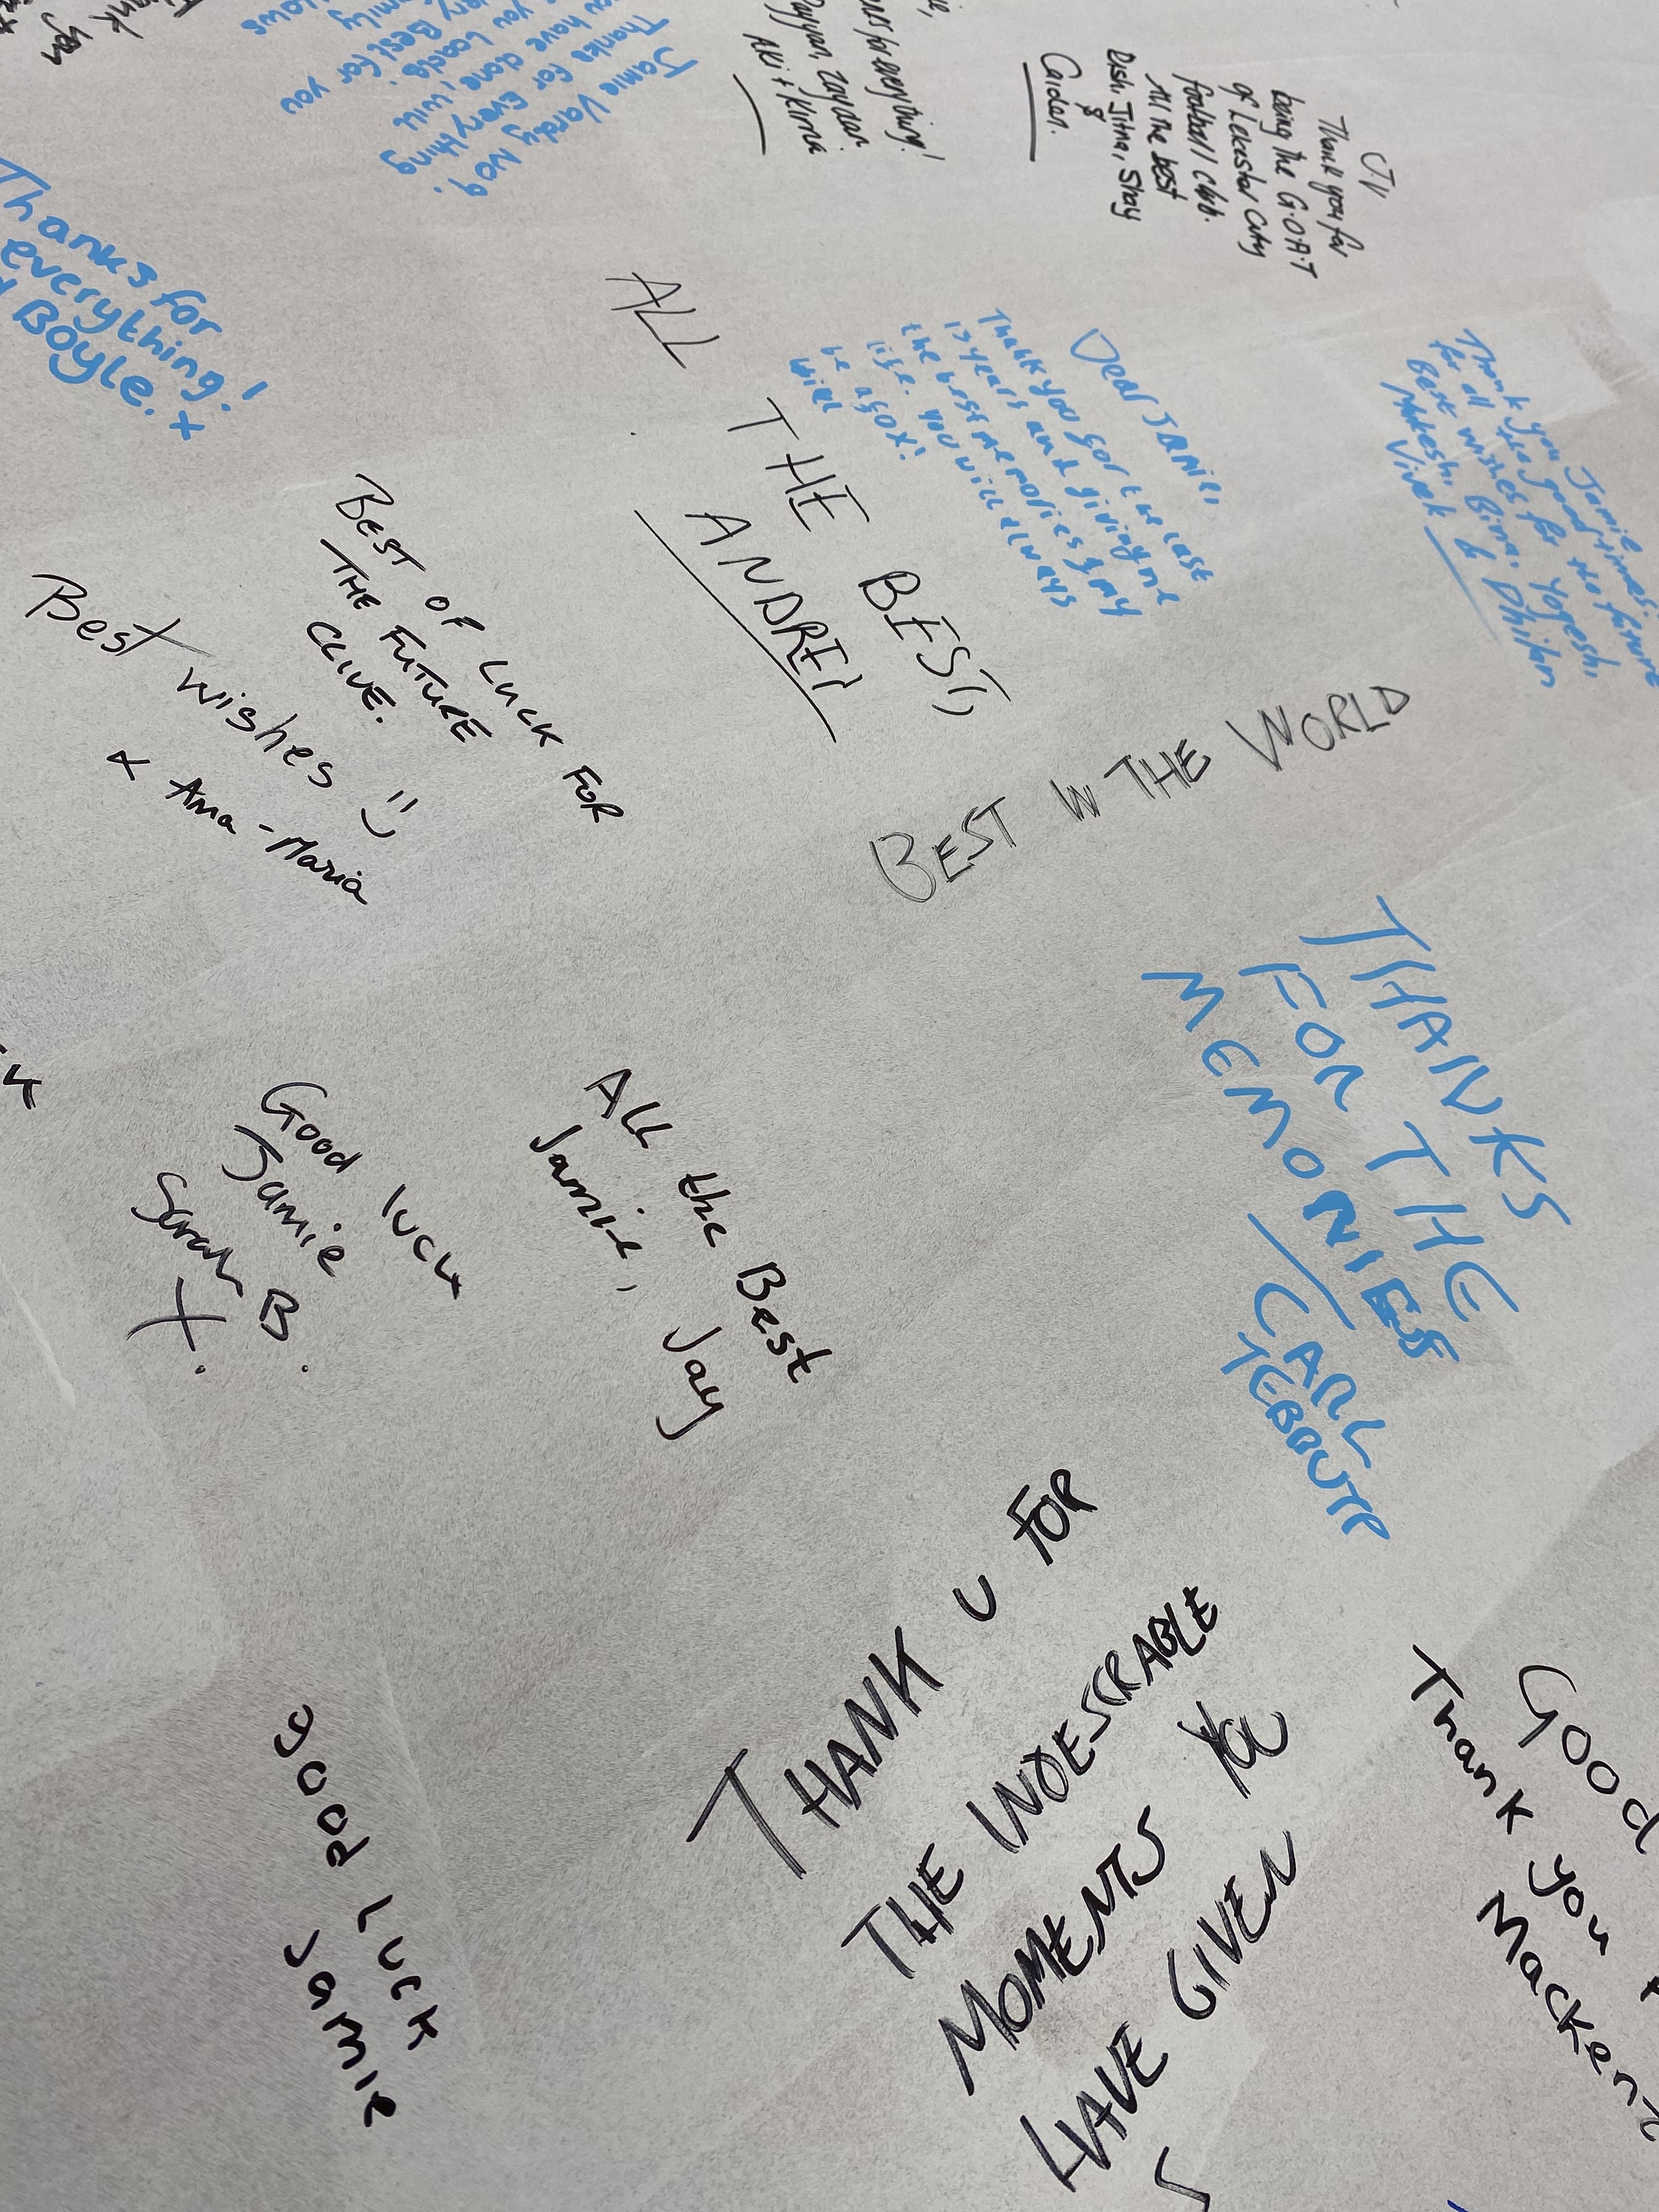 JV
Thank you for
being the G.O.A.T
of Leicester City
football club.
All the best
Dish, Jitna, Shay
&
Caiden.
for everything!
Rayyan, Zayydan
Aki + Kirna
Jamie Vardy No9.
Thanks for Everything
you have done, will
you Loads!
very Best for you
Thanks for
everything!
Boyle. x
ALL
THE BEST,
ANDREI
Dear JAMIE,
Thank you for the last
13 years and giving me
the best memories of my
life. You will always
be a fox!
Thank you Jamie
for all the good times.
Best wishes for the future
Mitesh, Bina, Yogesh,
Vivek & Dhilan
BEST OF LUCK FOR
THE FUTURE
CLIVE.
Best wishes
x Ama-Maria
BEST IN THE WORLD
THANKS
FOR THE
MEMORIES
CARL
TEBBUTT
Good luck
Jamie
Sarah B.
X.
All the Best
Jamie,
Jay
good Luck
Jamie
THANK U FOR
THE INDESCRABLE
MOMENTS YOU
HAVE GIVEN
Good
Thank you